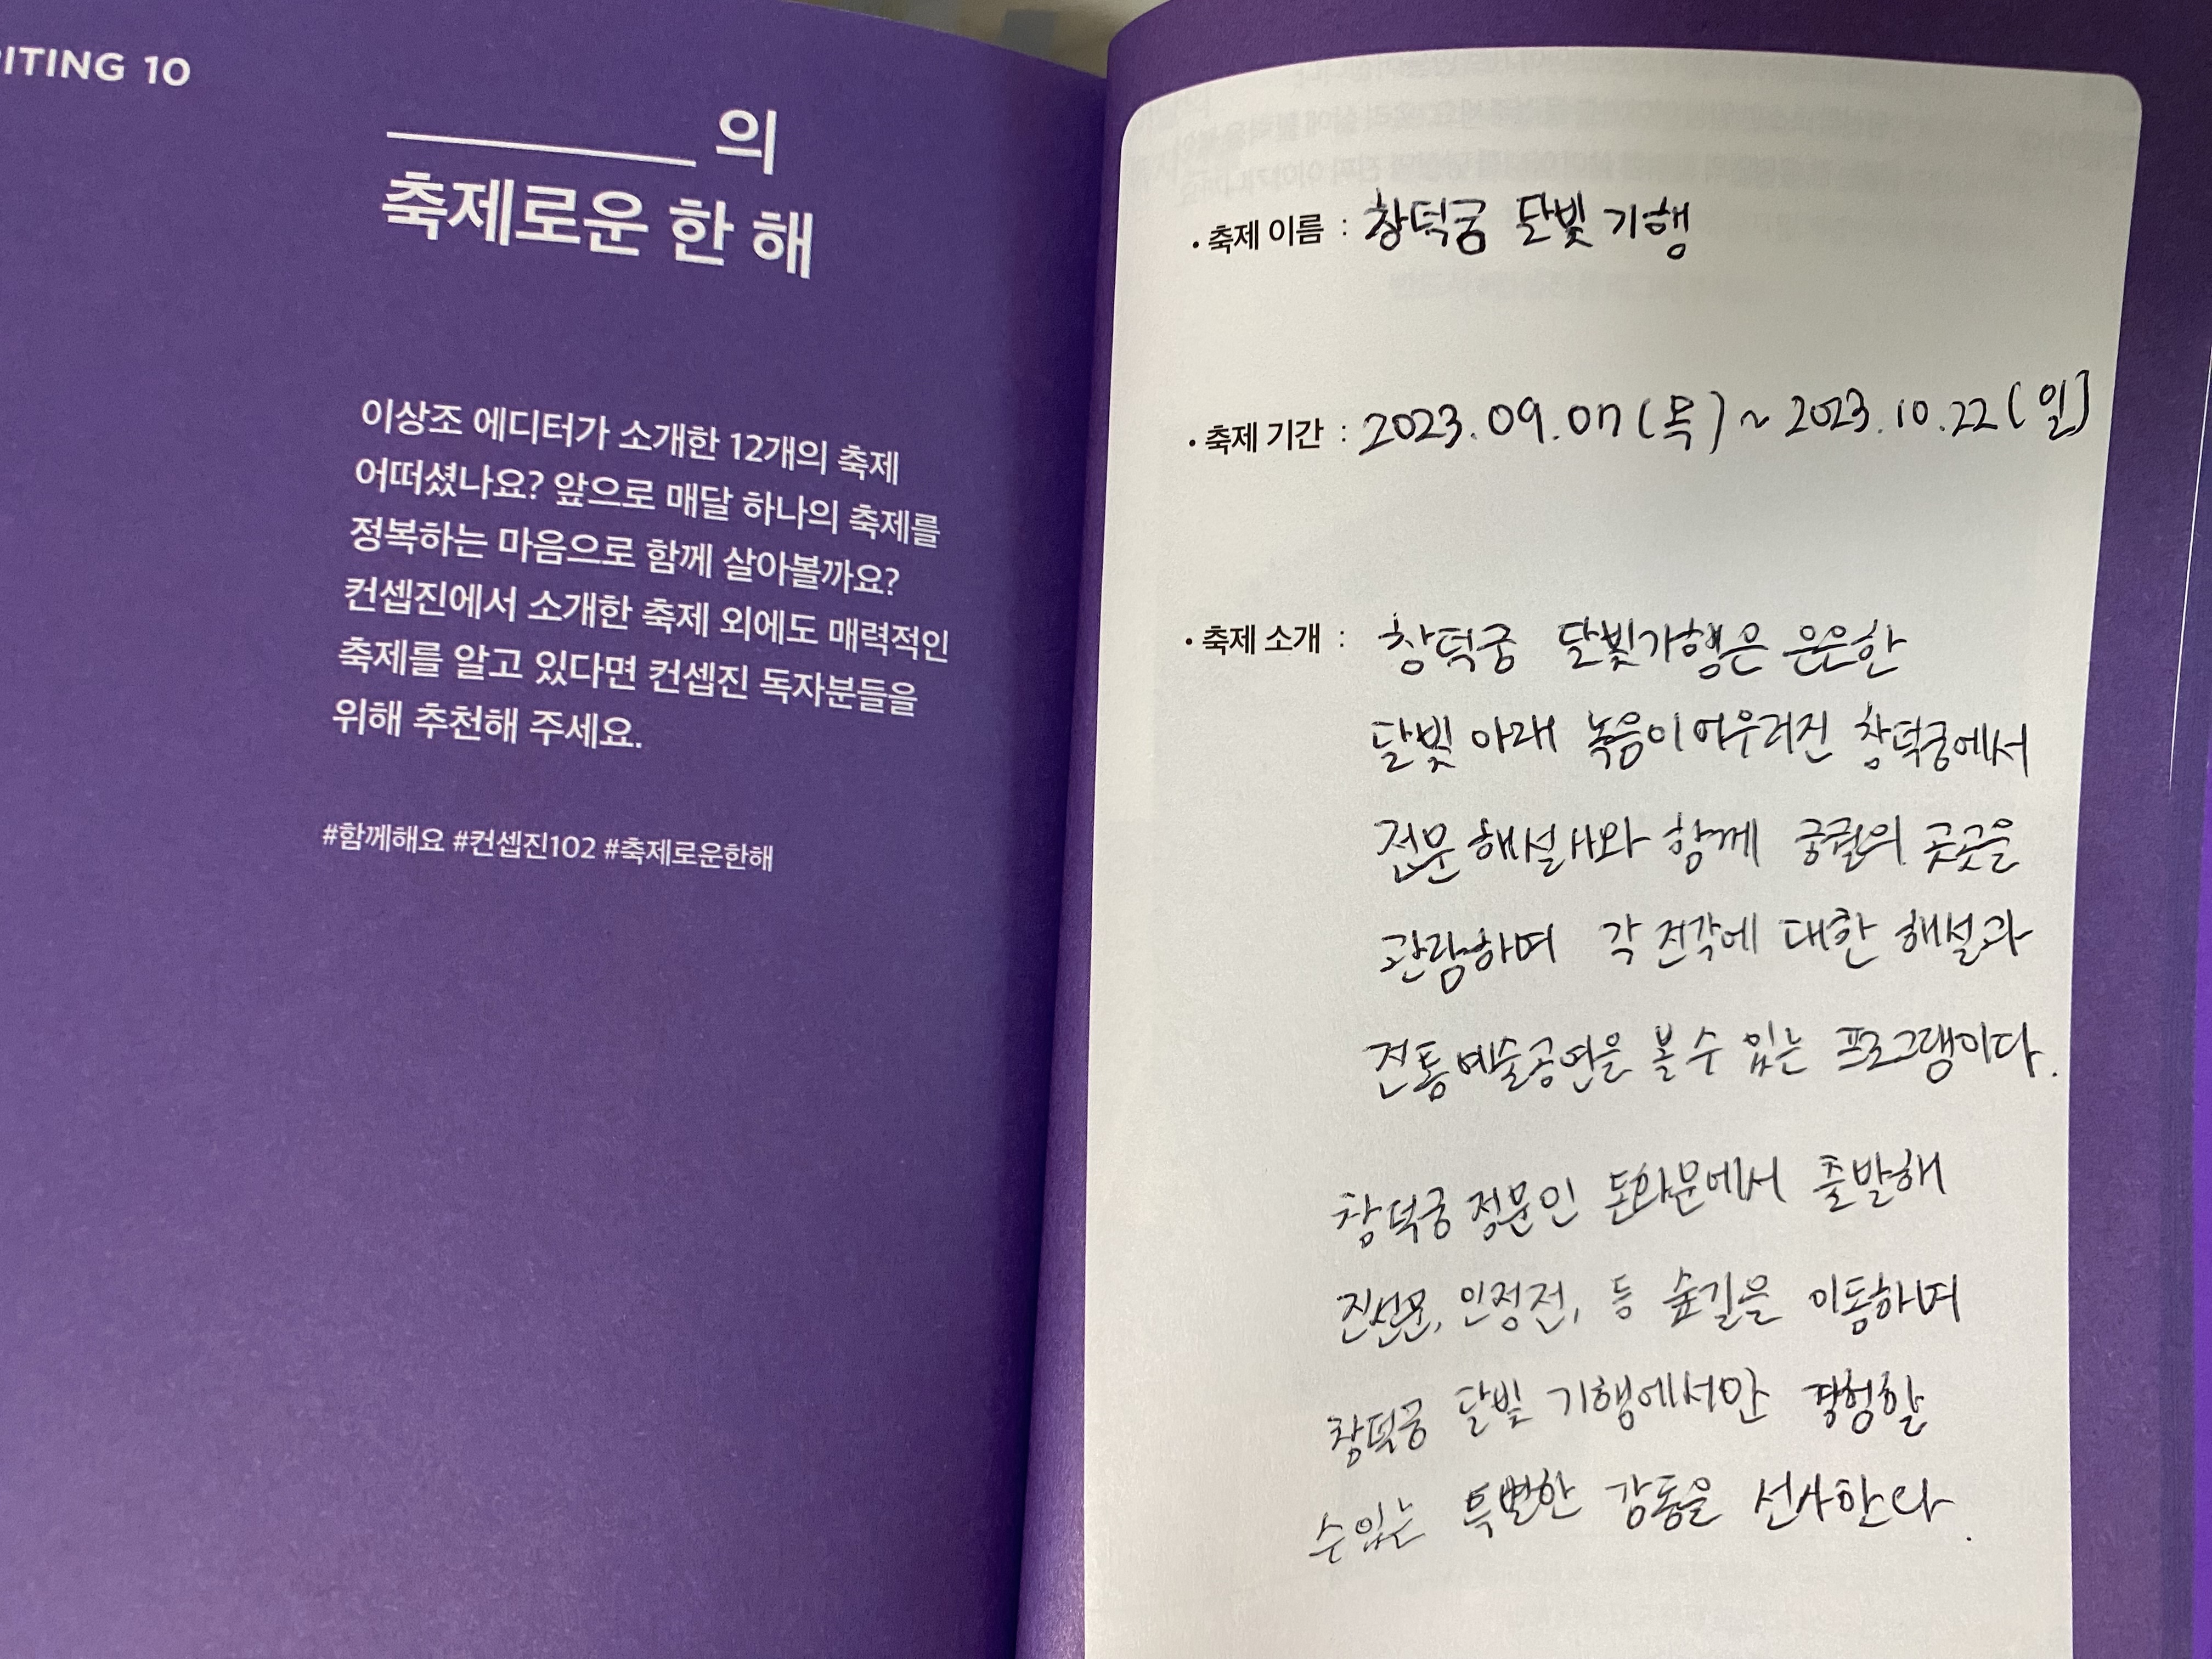 ITING 10
의
축제로운 한 해
이상조 에디터가 소개한 12개의 축제
어떠셨나요? 앞으로 매달 하나의 축제를
정복하는 마음으로 함께 살아볼까요?
컨셉진에서 소개한 축제 외에도 매력적인
축제를 알고 있다면 컨셉진 독자분들을
위해 추천해 주세요.
#함께해요 #컨셉진102 #축제로운한해
• 축제 이름 : 창덕궁 달빛 기행
• 축제 기간 : 2023.09.07(목) ~ 2023.10.22(일)
• 축제 소개 : 창덕궁 달빛기행은 은은한
달빛 아래 녹음이 어우러진 창덕궁에서
전문 해설사와 함께 궁궐의 곳곳을
관람하며 각 전각에 대한 해설과
전통예술공연을 볼 수 있는 프로그램이다.
창덕궁 정문인 돈화문에서 출발해
진선문, 인정전, 등 숲길을 이동하며
창덕궁 달빛 기행에서만 경험할
수 있는 특별한 감동을 선사한다.